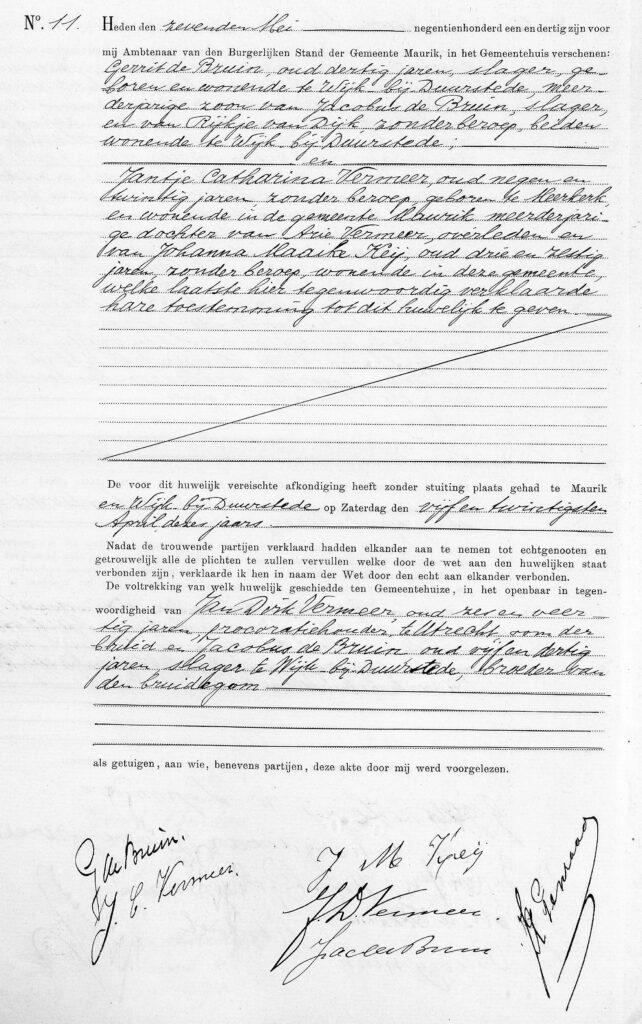 N°. 11. Heden den zevenden Mei negentienhonderd een en dertig zijn voor
mij Ambtenaar van den Burgerlijken Stand der Gemeente Maurik, in het Gemeentehuis verschenen:
Gerrit de Bruin, oud dertig jaren, slager, ge-
boren en wonende te Wijk bij Duurstede, meer-
derjarige zoon van Jacobus de Bruin, slager,
en van Rijkje van Dijk zonder beroep, beiden
wonende te Wijk bij Duurstede;
en
Jantje Catharina Vermeer, oud negen en
twintig jaren, zonder beroep, geboren te Meerkerk,
en wonende in de gemeente Maurik, meerderjari-
ge dochter van Arie Vermeer, overleden en
van Johanna Maaike Keij, oud drie en zestig
jaren, zonder beroep, wonende in deze gemeente,
welke laatste hier tegenwoordig verklaarde
hare toestemming tot dit huwelijk te geven.
De voor dit huwelijk vereischte afkondiging heeft zonder stuiting plaats gehad te Maurik
en Wijk bij Duurstede op Zaterdag den vijf en twintigsten
April dezes jaars
Nadat de trouwende partijen verklaard hadden elkander aan te nemen tot echtgenooten en
getrouwelijk alle de plichten te zullen vervullen welke door de wet aan den huwelijken staat
verbonden zijn, verklaarde ik hen in naam der Wet door den echt aan elkander verbonden.
De voltrekking van welk huwelijk geschiedde ten Gemeentehuize, in het openbaar in tegen-
woordigheid van Jan Dirk Vermeer, oud zes en veer
tig jaren, procuratiehouder, te Utrecht, oom der
bruid en Jacobus de Bruin oud vijf en dertig
jaren slager te Wijk bij Duurstede, broeder van
den bruidegom
als getuigen, aan wie, benevens partijen, deze akte door mij werd voorgelezen.
G de Bruin.
J. C. Vermeer.
J M Keij
J.D. Vermeer.
Jac de Bruin